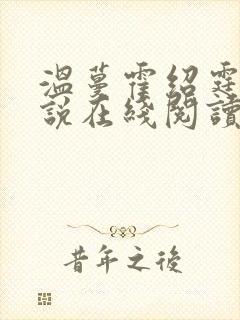 温蔓霍绍霆
說在綫閱讀
昔年之後